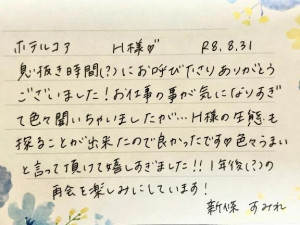 ホテルコア　H様♡　R8.8.31
息抜き時間(?)にお呼び下さりありがとう
ございました！お仕事の事が気になりすぎ
て色々聞いちゃいましたが…H様の生態も
探ることが出来たので良かったです♡色々うまい
と言って頂けて嬉しすぎました!!1年後(?)の
再会を楽しみにしています！
新條 すみれ